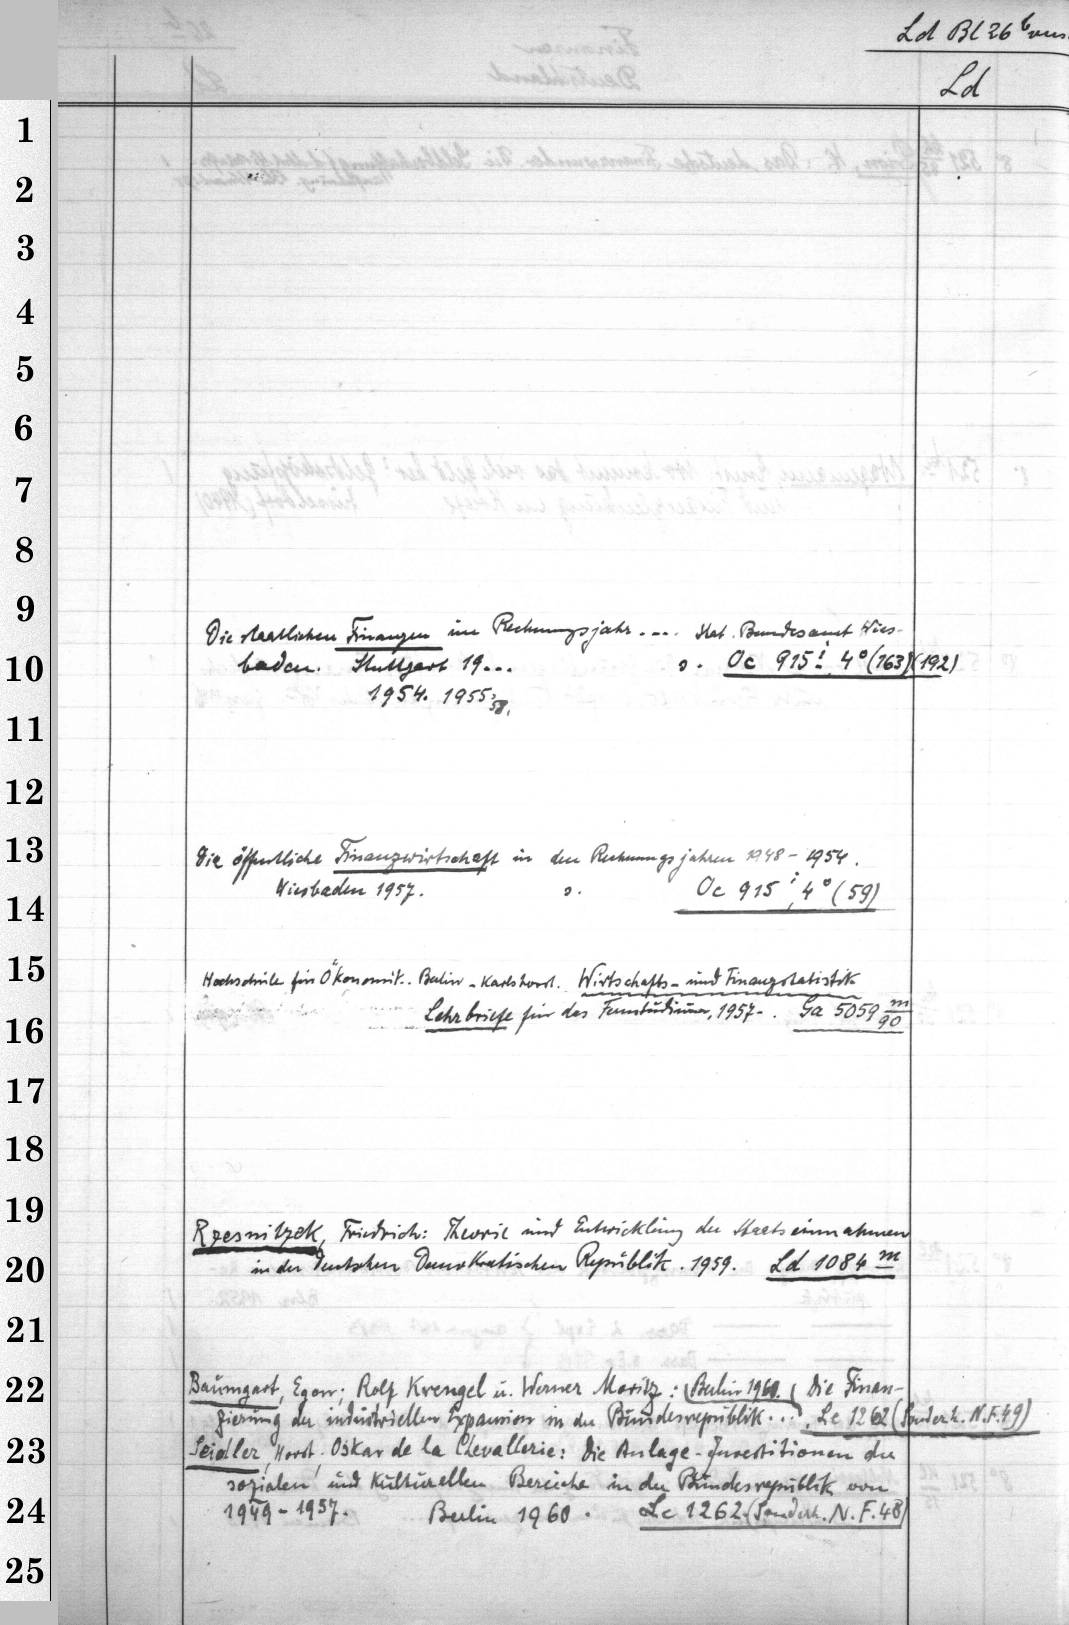 Ld Bl 26 b
Ld
1
2
3
4
5
6
7
8
9
Die staatlichen Finanzen im Rechnungsjahr .... Stat. Bundesamt Wies-
10
baden. Stuttgart 19... o. Oc 915 i, 4° (163) (192)
1954. 1955, 58.
11
12
13
Die öffentliche Finanzwirtschaft in den Rechnungsjahren 1948 - 1954.
Wiesbaden 1957. o. Oc 915 i, 4° (59)
14
15
Hochschule für Ökonomik.. Berlin - Karlshorst. Wirtschafts- und Finanzstatistik
16
Lehrbriefe für das Fernstudium, 1957-. Ga 5059 m/90
17
18
19
Rzesnitzek, Friedrich: Theorie und Entwicklung der Staatseinnahmen
20
in der Deutschen Demokratischen Republik. 1959. Ld 1084 m
21
22
Baumgart, Egon; Rolf Krengel u. Werner Moritz: (Berlin 1960.) Die Finan-
zierung der industriellen Expansion in der Bundesrepublik .... Lc 1262 (Sonderh. N.F. 49)
23
Seidler, Horst, Oskar de la Chevallerie: Die Anlage-Investitionen der
sozialen und kulturellen Bereiche in der Bundesrepublik von
24
1949 - 1957. Berlin 1960. Lc 1262 (Sonderh. N.F. 48)
25